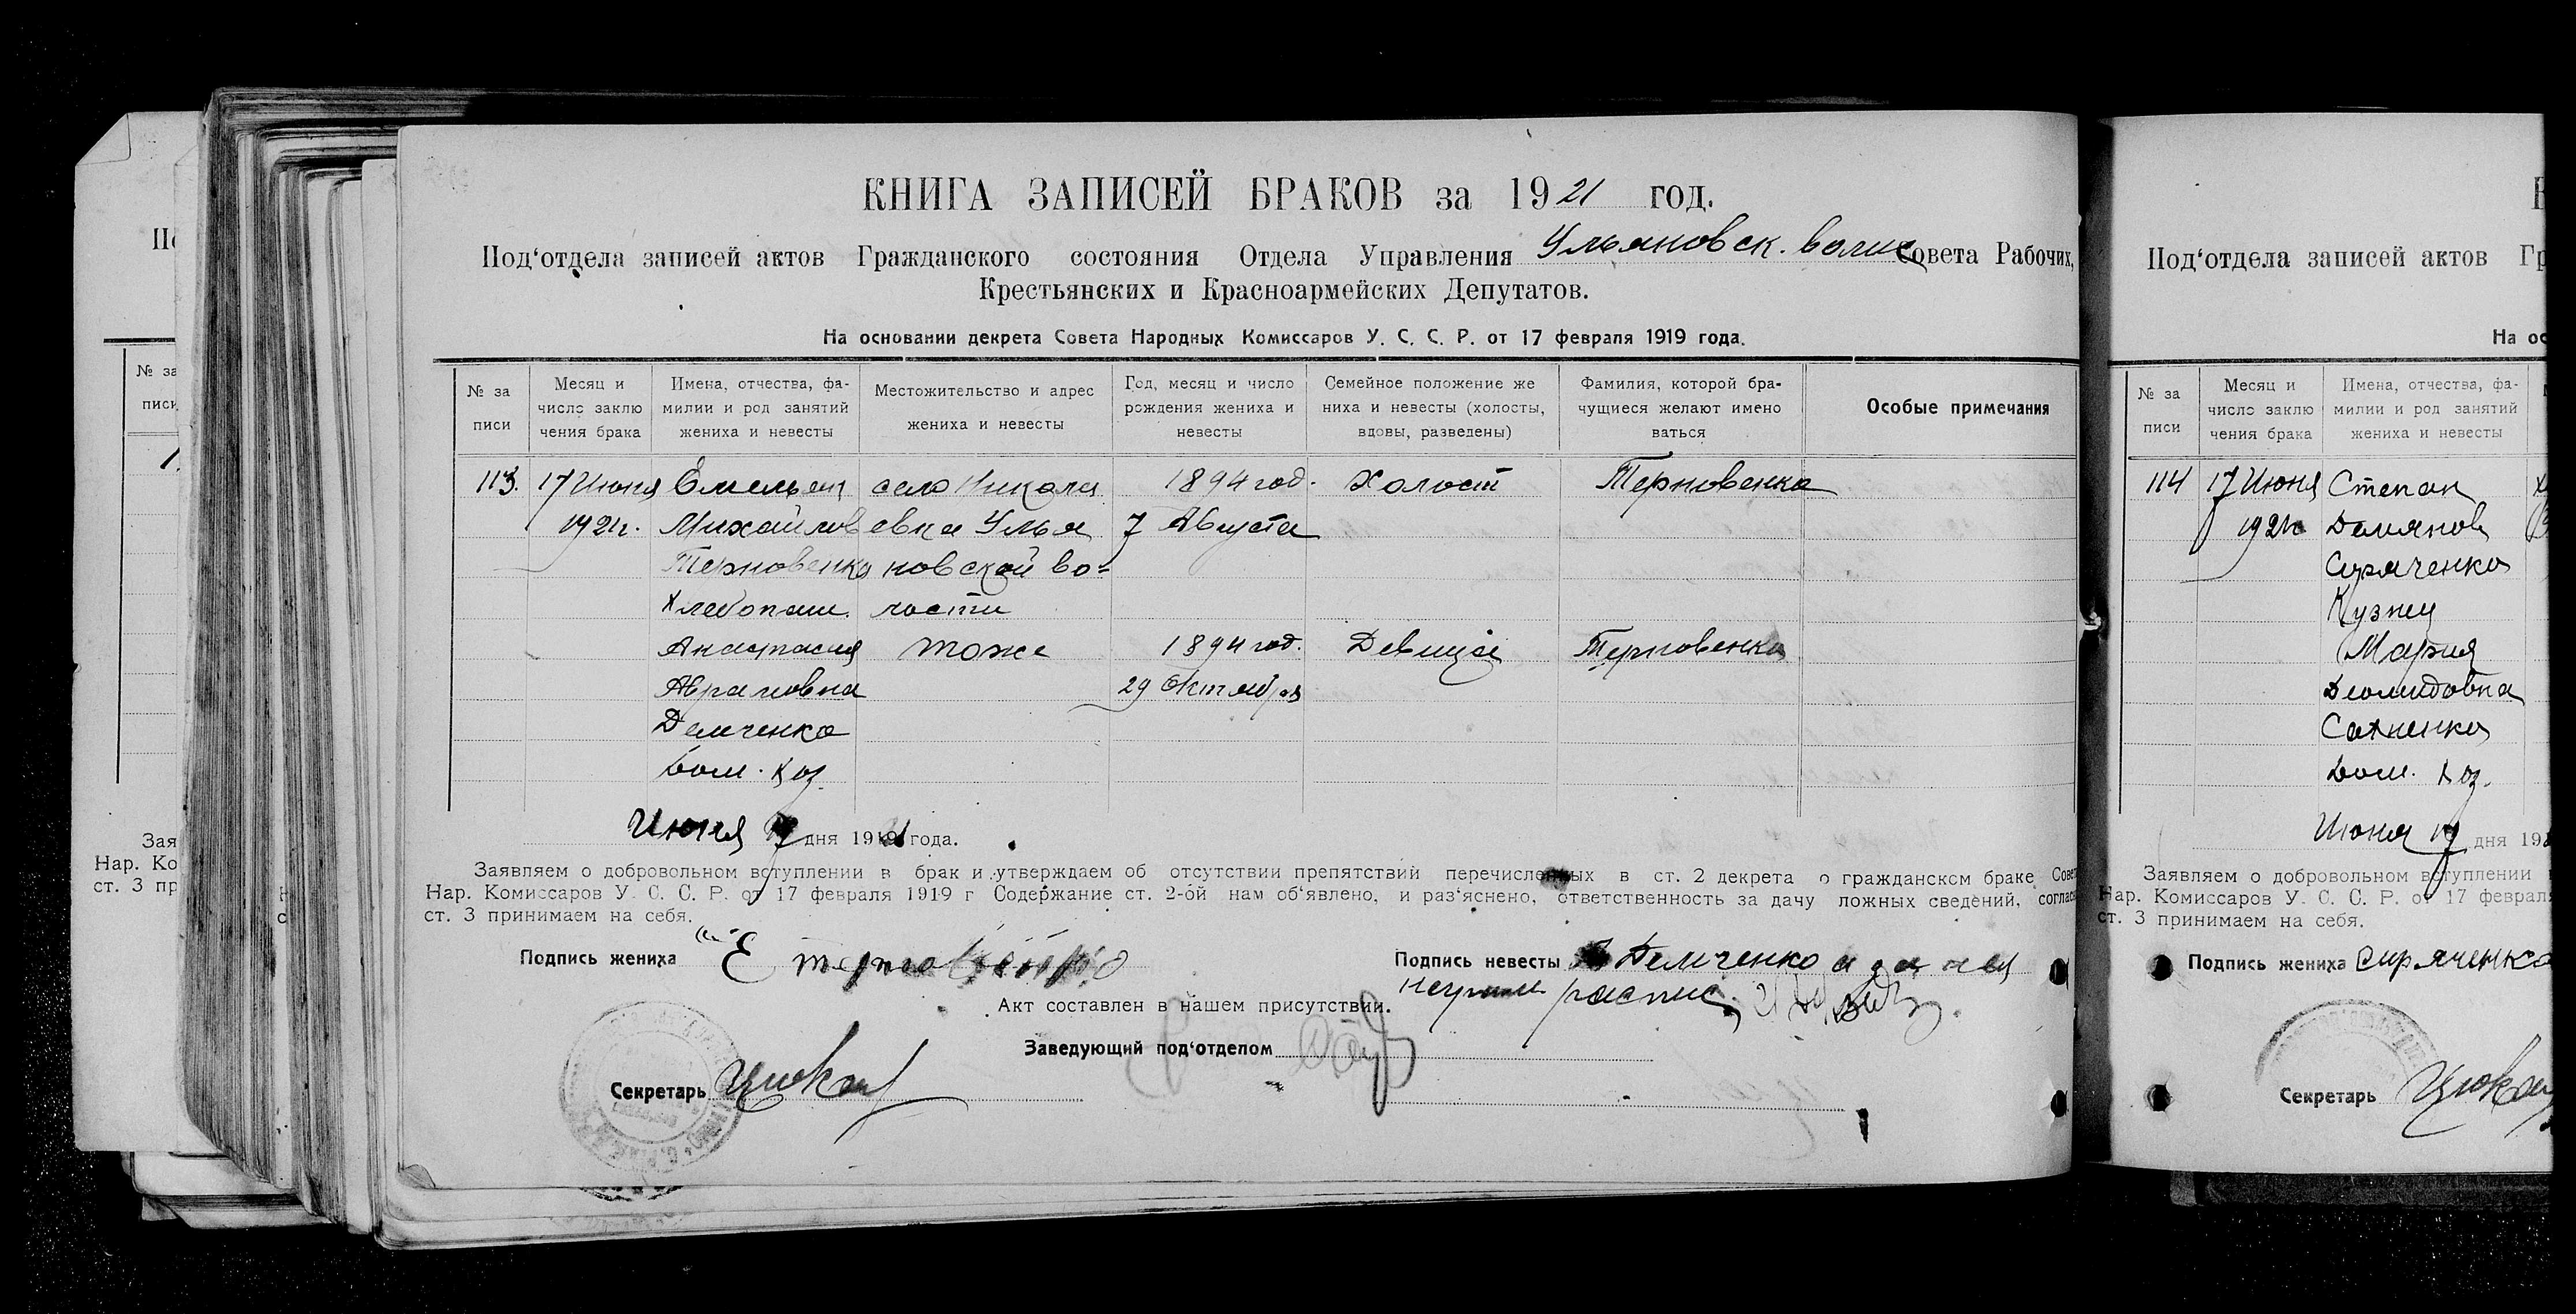 КНИГА ЗАПИСЕЙ БРАКОВ за 1921 год.
Под‘отдела записей актов Гражданского состояния Отдела Управления Ульяновск. волис Совета Рабочих,
Крестьянских и Красноармейских Депутатов.
На основании декрета Совета Народных Комиссаров У. С. С. Р. от 17 февраля 1919 года.
№ за писи
Месяц и число заклю чения брака
Имена, отчества, фа- милии и род занятий жениха и невесты
Местожительство и адрес жениха и невесты
Год, месяц и число рождения жениха и невесты
Семейное положение же ниха и невесты (холосты, вдовы, разведены)
Фамилия, которой бра- чущиеся желают имено ваться
Особые примечания
113. 17 Июня Емельян село Никола 1894 год. Холост Терновенко
1921г. Михайлов евка Улья 7 Августа
Терновенко новской во=
Хлебопаш. лости
Анастасия тоже 1894 год. Девица Терновенко
Аврамовна 29 Октября
Демченко
Дом. хоз.
Июня 17 дня 1921 года.
Заявляем о добровольном вступлении в брак и утверждаем об отсутствии препятствий перечисленных в ст. 2 декрета о гражданском браке Совет
Нар. Комиссаров У. С. С. Р. от 17 февраля 1919 г Содержание ст. 2-ой нам об‘явлено, и раз‘яснено, ответственность за дачу ложных сведений, соглас
ст. 3 принимаем на себя.
Подпись жениха Е терновенко
Подпись невесты Демченко а за нея
неграм распис.
Акт составлен в нашем присутствии.
Заведующий под‘отделом
Секретарь
№ за
писи
Под‘отдела записей актов Гр
На ос
№ за писи
Месяц и число заклю чения брака
Имена, отчества, фа- милии и род занятий жениха и невесты
114 17 Июня Степан
1921г Демянов
Сиряченко
Кузнец
Мария
Диомидовна
Сахненко
Дом. хоз.
Июня 17 дня 19
Заявляем о добровольном вступлении
Нар. Комиссаров У. С. С. Р. от 17 феврал
ст. 3 принимаем на себя.
Подпись жениха Сиряченко
Секретарь
Зая
Нар. Ко
ст. 3 пр